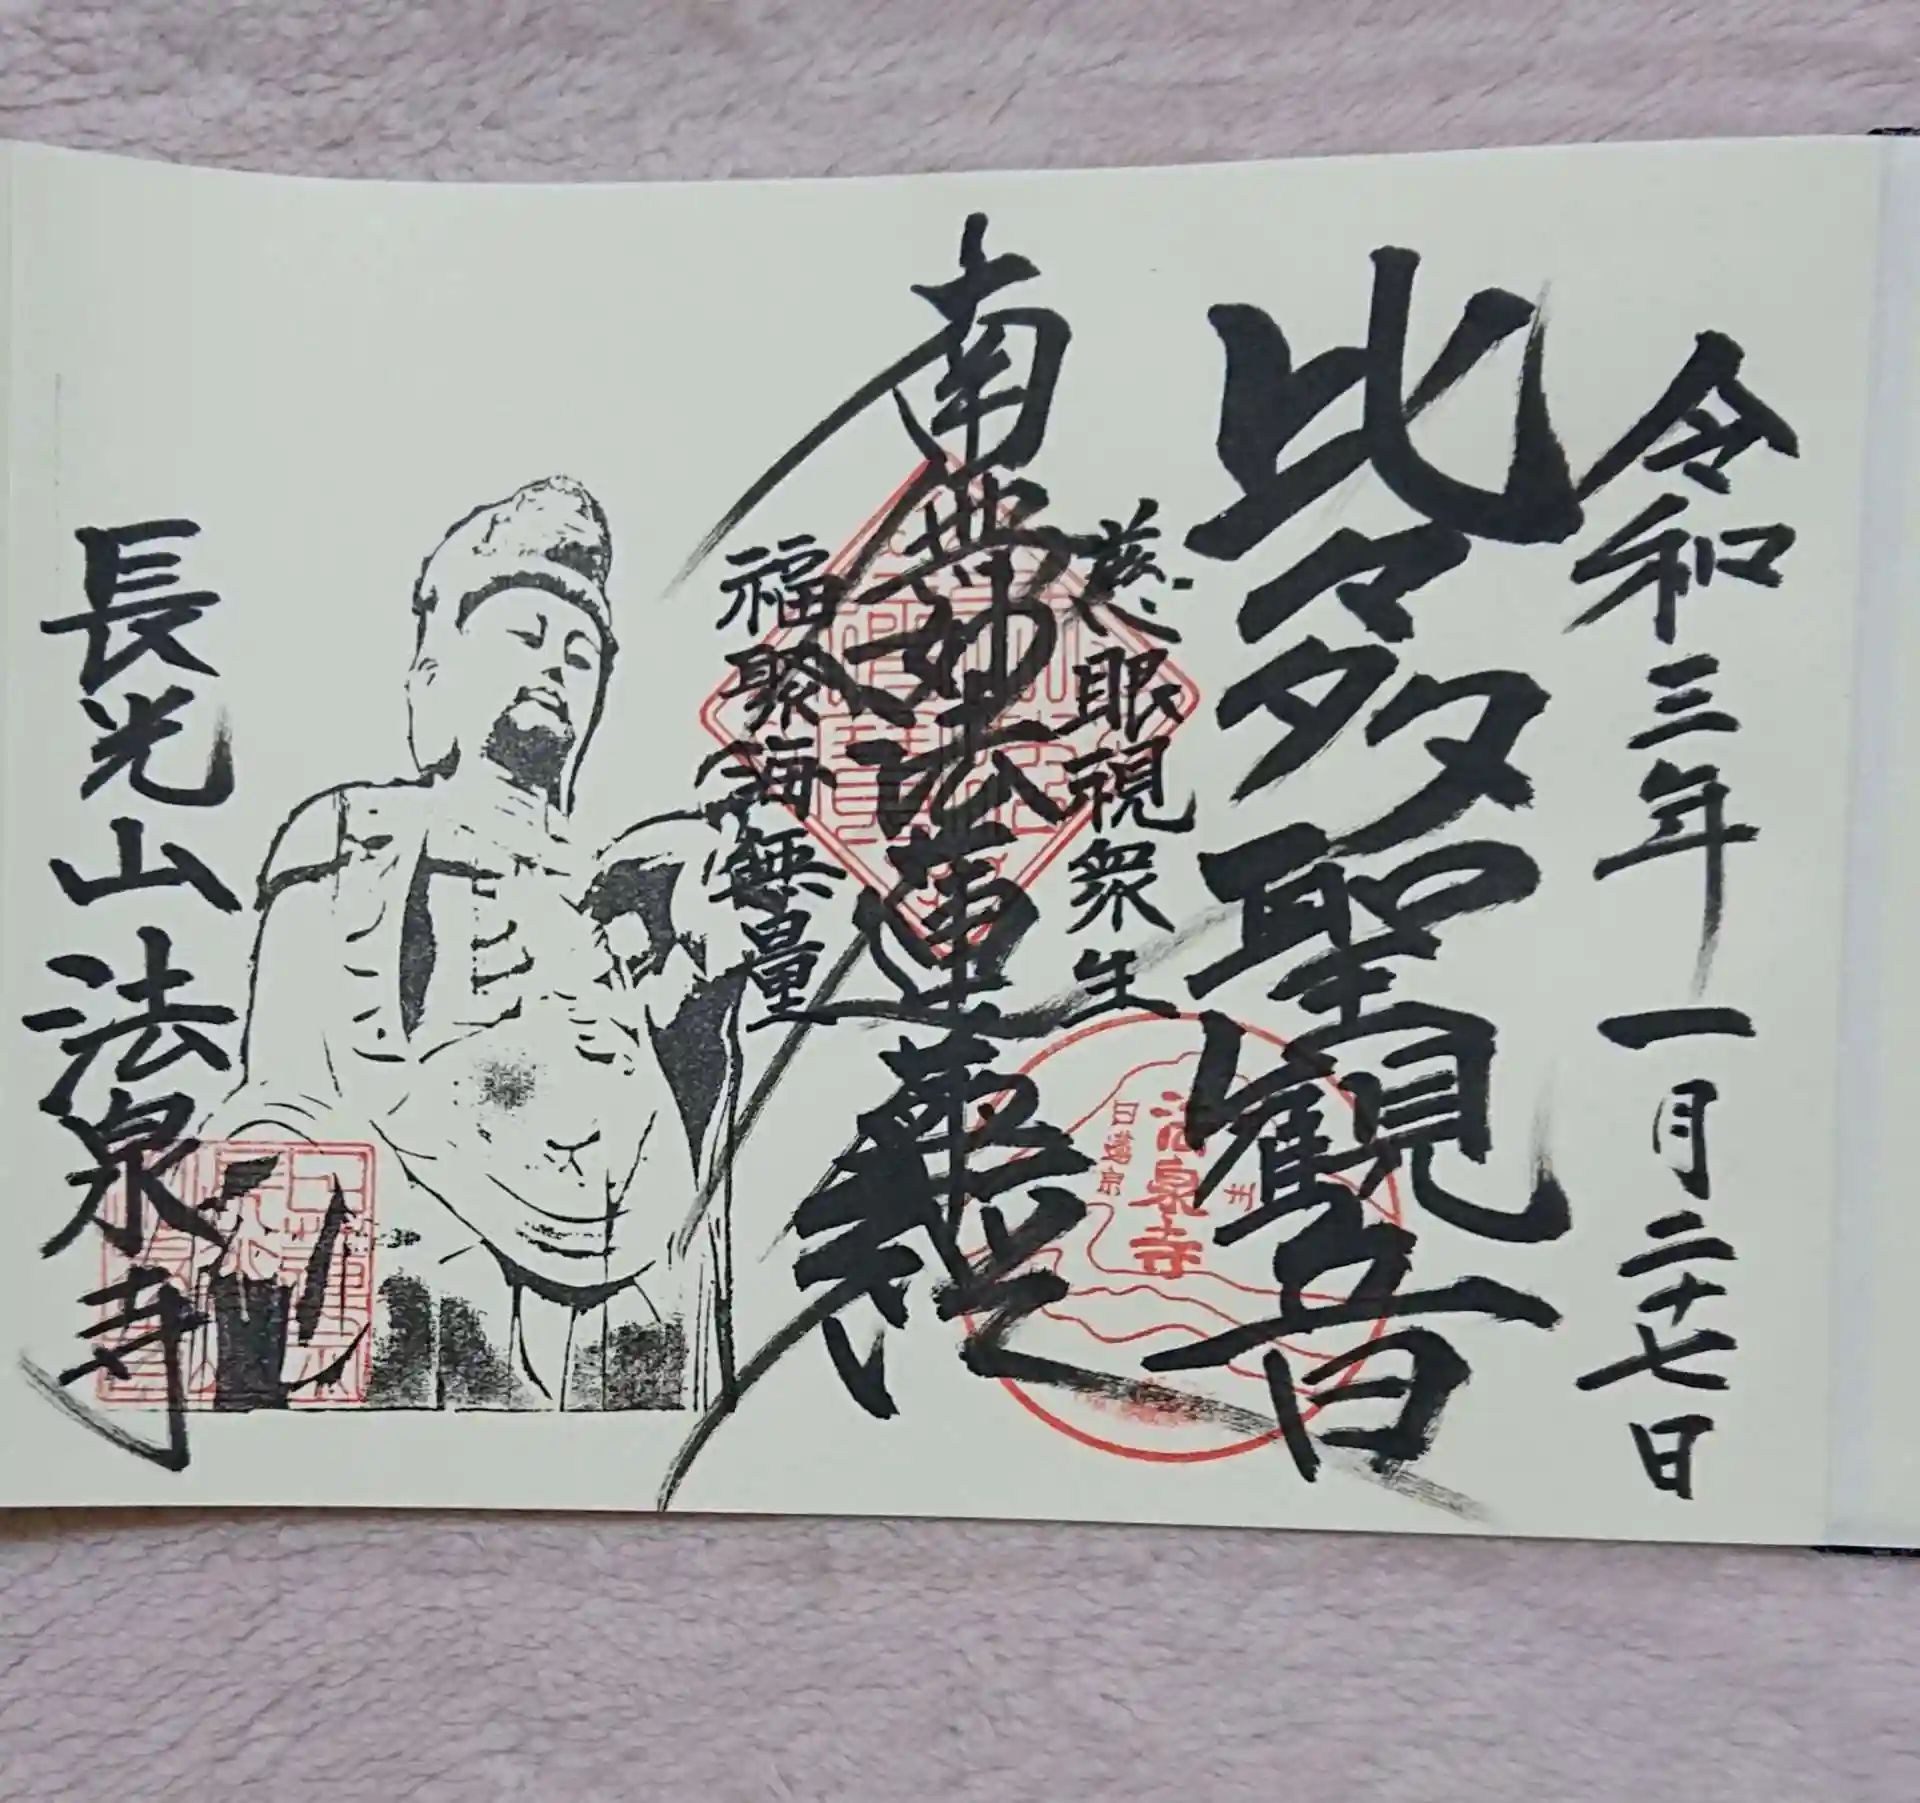 令和三年一月二十七日
比々多聖観音
慈眼視衆生
南無妙法蓮華経
福聚海無量
長光山法泉寺
法泉寺
日蓮宗